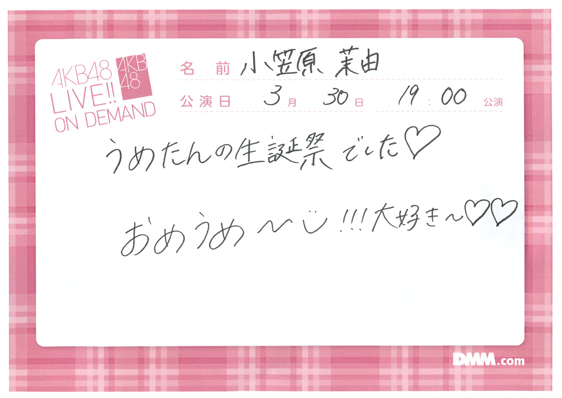 AKB48
LIVE!!
ON DEMAND
AKB
48
名前 小笠原 茉由
公演日 3月 30日 19:00 公演
うめたんの生誕祭でした♡
おめうめ〜!!!大好き〜♡♡
DMM.com